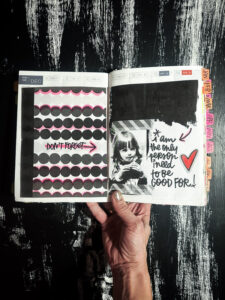 DEC
DON'T FORGET
* i am
the only
person
i need
to be
GOOD FOR..!